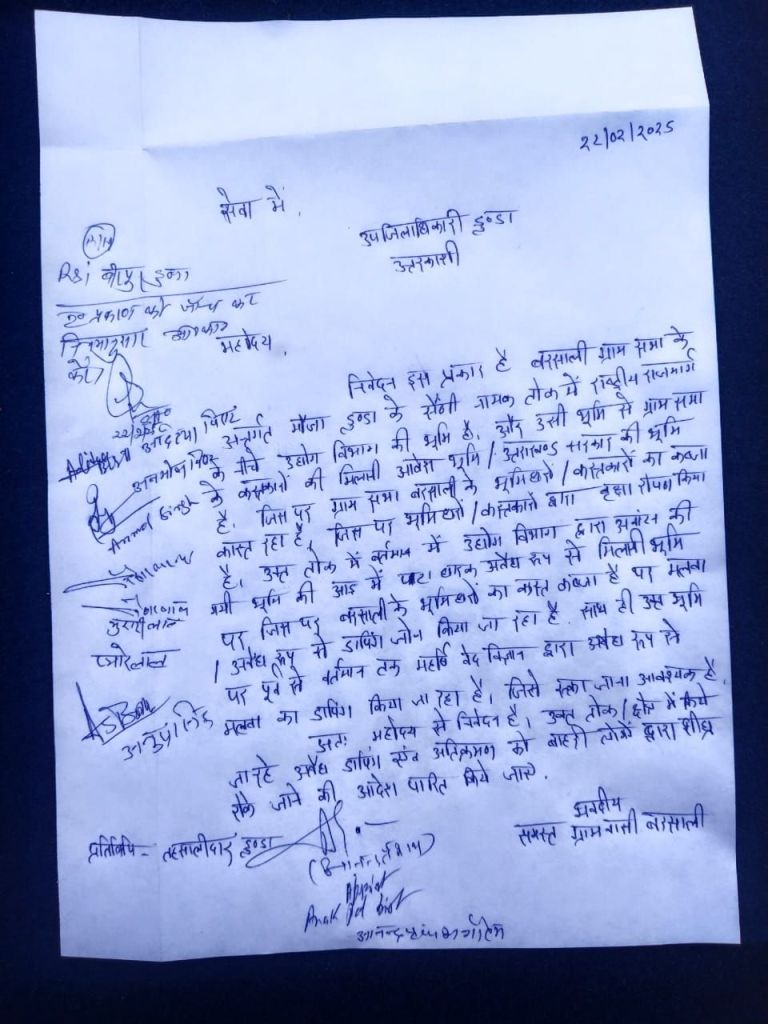 22/02/2025
सेवा में,
उपजिलाधिकारी डुण्डा
उत्तरकाशी
R&i डुण्डा
प्रकरण की जाँच कर
नियमानुसार
करें
महोदय,
निवेदन इस प्रकार है बरसाली ग्राम सभा के
अर्न्तगत मौजा डुण्डा के सैणी नामक तोक में राष्ट्रीय राजमार्ग
के नीचे उद्योग विभाग की भूमि है, और उसी भूमि से ग्राम सभा
के कास्तकारों की मिलानी आवेश भूमि / उत्तराखण्ड सरकार की भूमि
है, जिस पर ग्राम सभा बरसाली के भूमिधरों / कास्तकारों का कब्जा
कास्त रहा है, जिस पर भूमिधरों / कास्तकारों द्वारा वृक्षा रोपण किया
है, उक्त तोक में वर्तमान में उद्योग विभाग द्वारा अवांटन की
गयी भूमि की आड में पटा धारक अवैध रूप से मिलानी भूमि
पर जिस पर बरसाली के भूमिधरों का कास्त कब्जा है पर मलवा
/ अवैध रूप से डापिंग जोन किया जा रहा है, साथ ही उक्त भूमि
पर पूर्व से वर्तमान तक महर्षि वेद विज्ञान द्वारा अवैध रूप से
मलवा का डापिंग किया जा रहा है, जिसे रूका जाना आवश्यक है,
अतः महोदय से निवेदन है, उक्त तोक / क्षेत्र में किये
जा रहे अवैध डापिंग एंव अतिक्रमण को बाहरी लोगों द्वारा शीघ्र
रोके जाने की आदेश पारित किये जाए,
भवदीय
समस्त ग्रामवासी बरसाली
प्रतिलिपि - तहसीलदार डुण्डा
22/2/25
Anmol Singh
प्यारेलाल